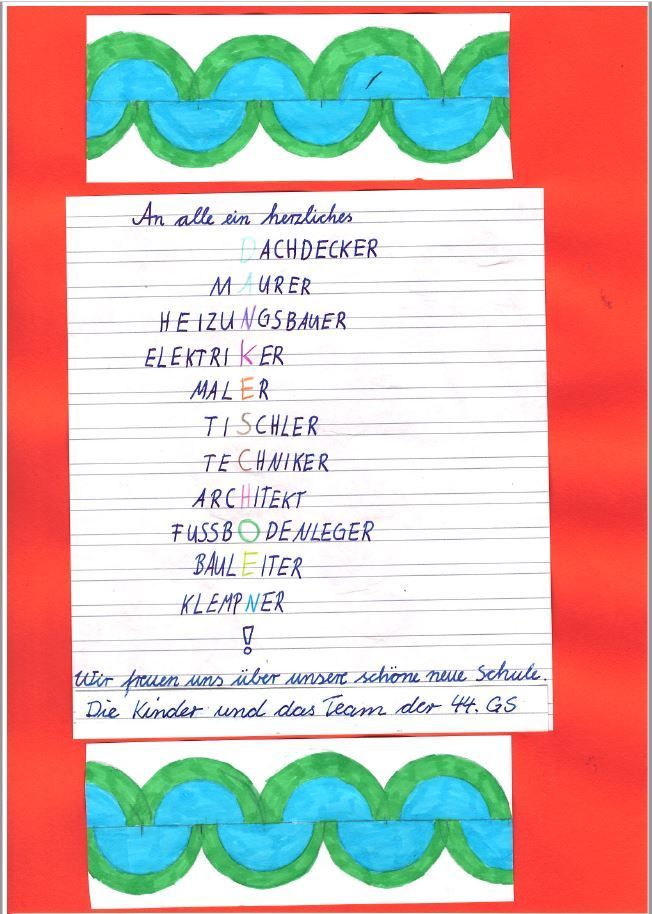 An alle ein herzliches
DACHDECKER
MAURER
HEIZUNGSBAUER
ELEKTRIKER
MALER
TISCHLER
TECHNIKER
ARCHITEKT
FUSSBODENLEGER
BAULEITER
KLEMPNER
!
Wir freuen uns über unsere schöne neue Schule.
Die Kinder und das Team der 44. GS